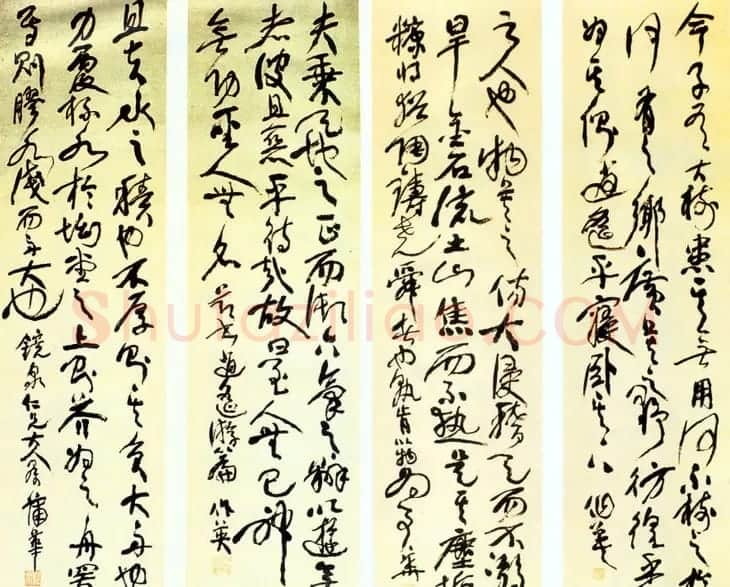 今子有大樹患其無用何不樹之於
何有之鄉廣莫之野彷徨乎
為其側逍遙乎寢卧其下
之人也物莫之傷大浸稽天而不溺
旱金石流土山焦而不熱是其塵垢
糠將猶陶鑄堯舜者也孰肯以物為事
夫乘天地之正而御六氣之辯以遊無
者彼且惡乎待哉故曰至人無己神
無功聖人無名 逍遙游篇 作英
且夫水之積也不厚則其負大舟也
力覆杯水於坳堂之上則芥為之舟置
焉則膠水淺而舟大也 鏡泉仁兄大人屬 蒲華
Shufaziliao.COM